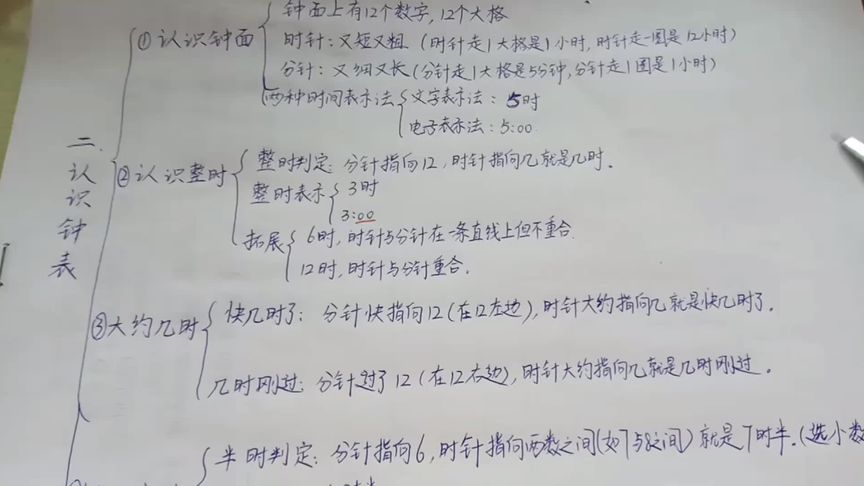 二、认识钟表
①认识钟面
钟面上有12个数字,12个大格
时针:又短又粗(时针走1大格是1小时,时针走一圈是12小时)
分针:又细又长(分针走1大格是5分钟,分针走1圈是1小时)
两种时间表示法
文字表示法:5时
电子表示法:5:00
②认识整时
整时判定:分针指向12,时针指向几就是几时.
整时表示
3时
3:00
拓展
6时,时针与分针在一条直线上但不重合.
12时,时针与分针重合.
③大约几时
快几时了:分针快指向12(在12左边),时针大约指向几就是快几时了.
几时刚过:分针过了12(在12右边),时针大约指向几就是几时刚过.
半时判定:分针指向6,时针指向两数之间(如7与8之间)就是7时半.(选小数